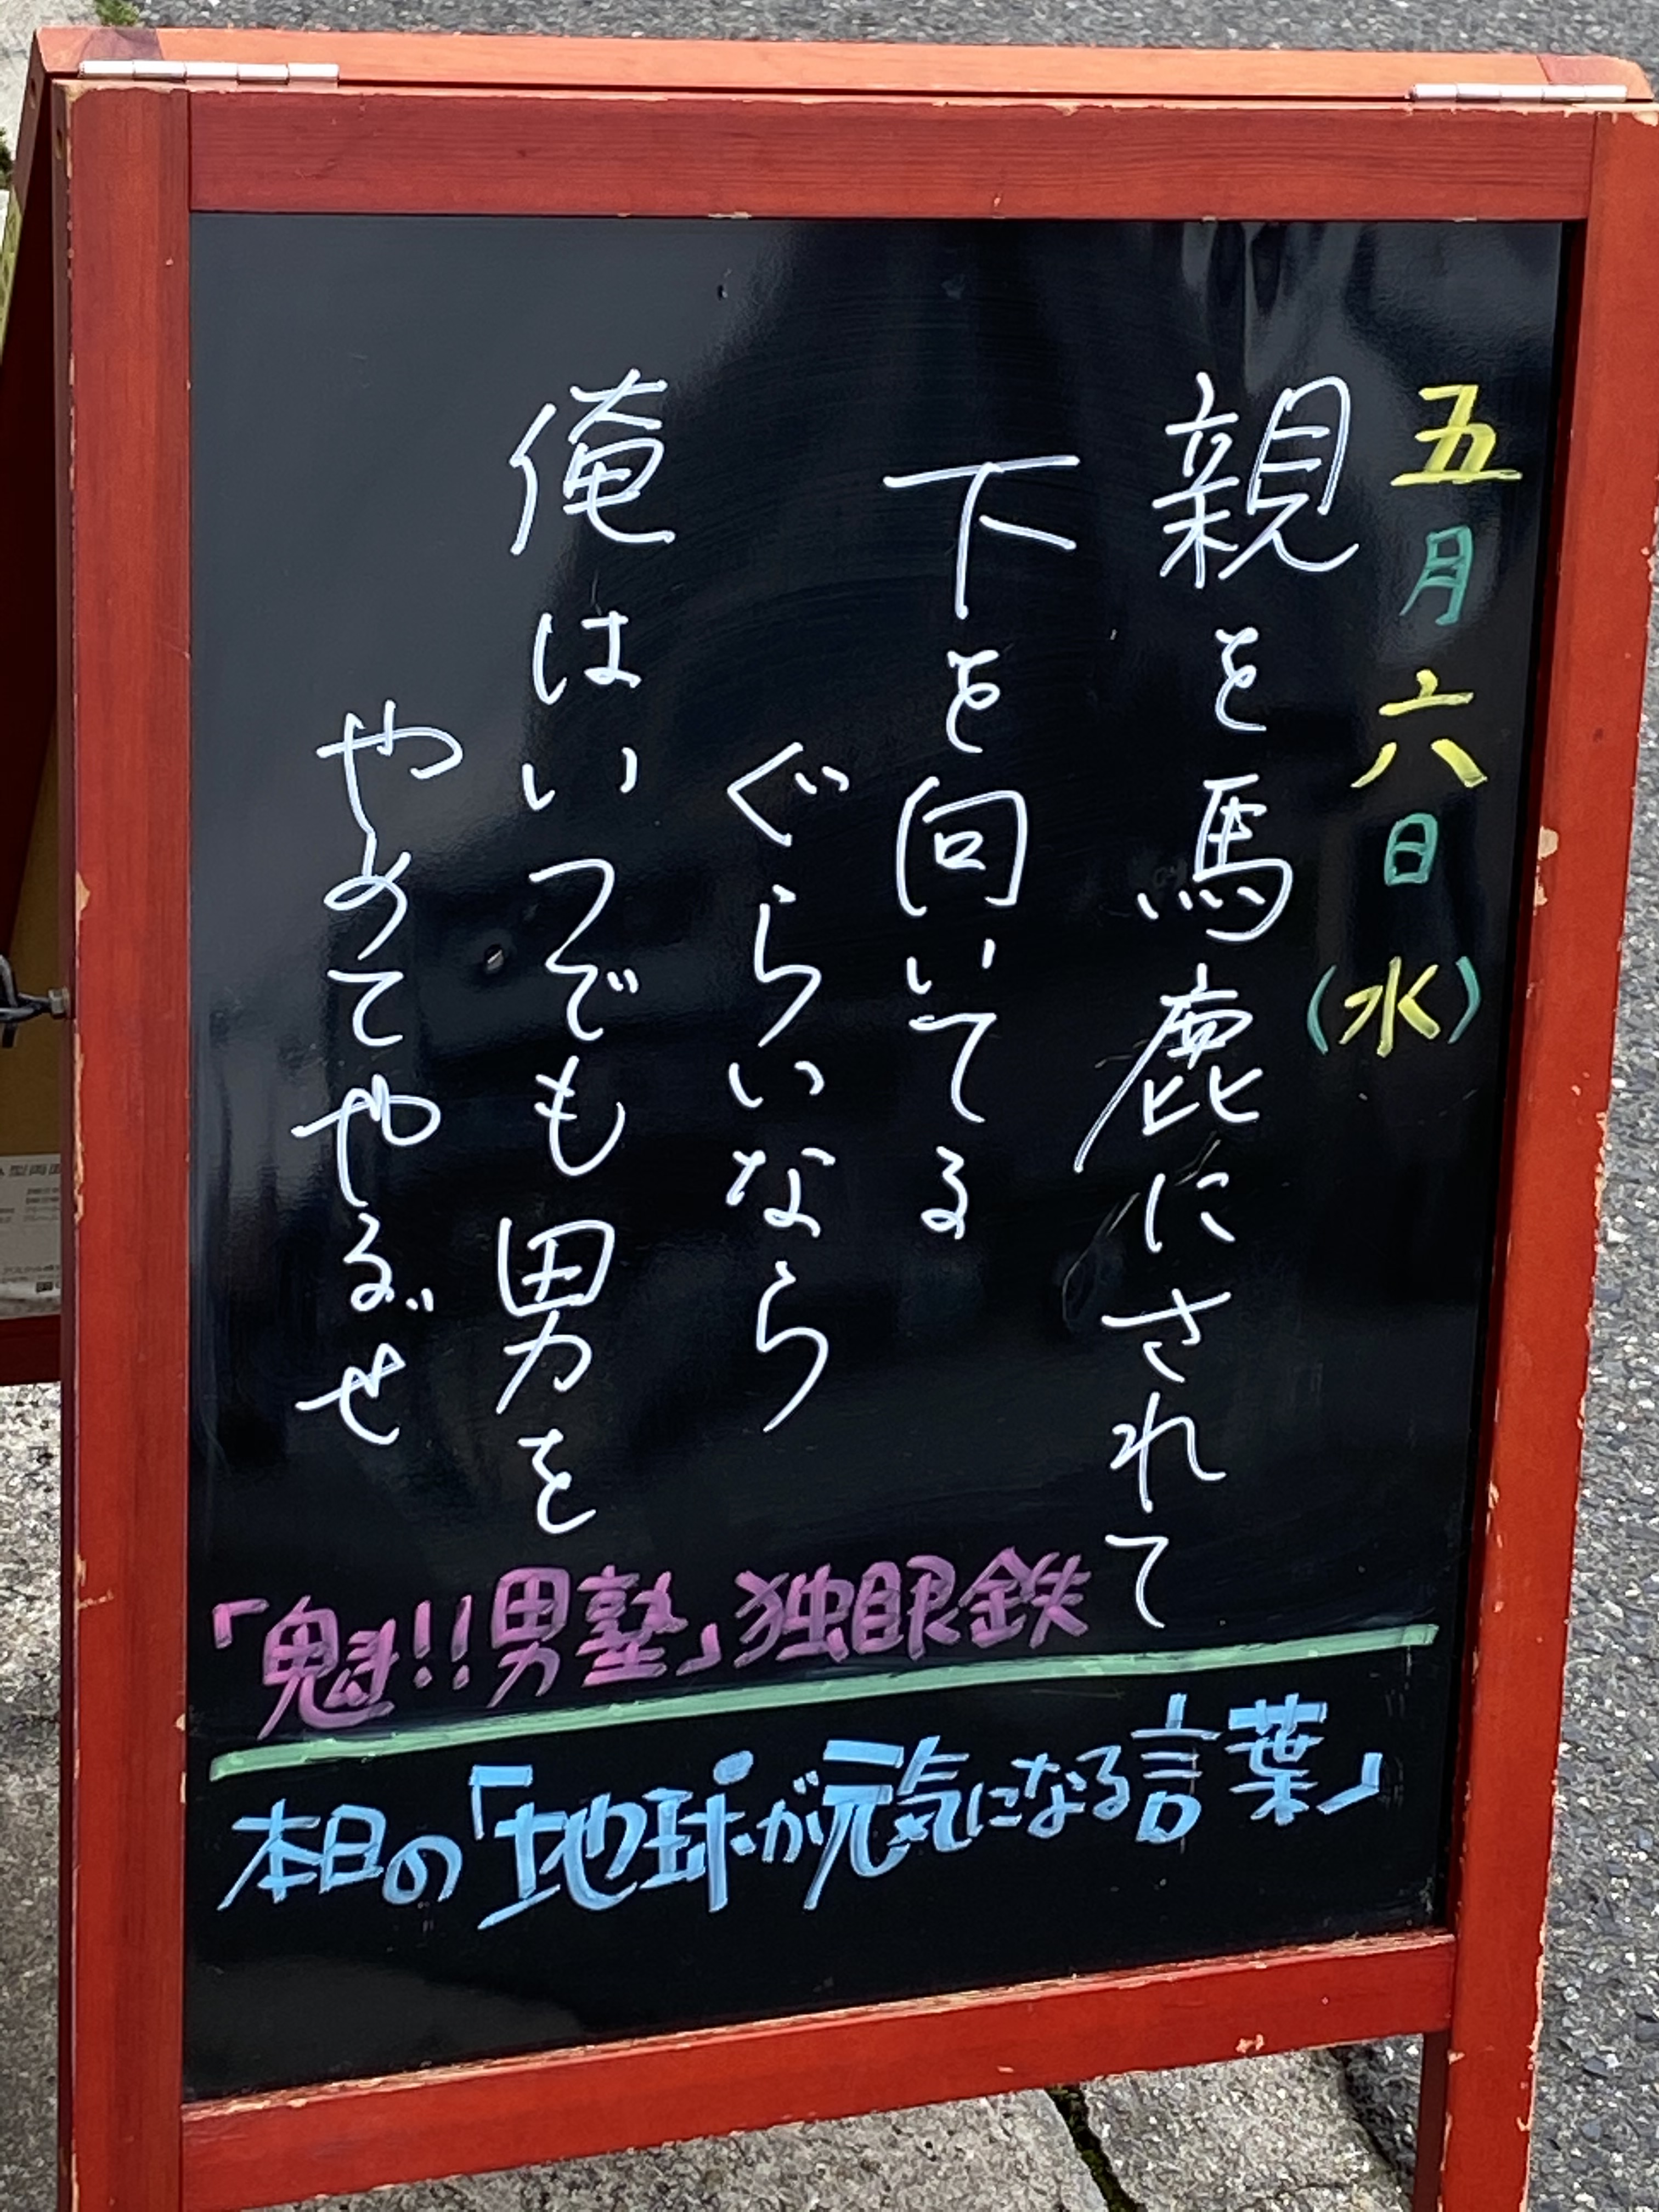 五月六日(水)
親を馬鹿にされて
下を向いてる
ぐらいなら
俺はいつでも男を
やめてやるぜ
「魁!!男塾」独眼鉄
本日の「地球が元気になる言葉」